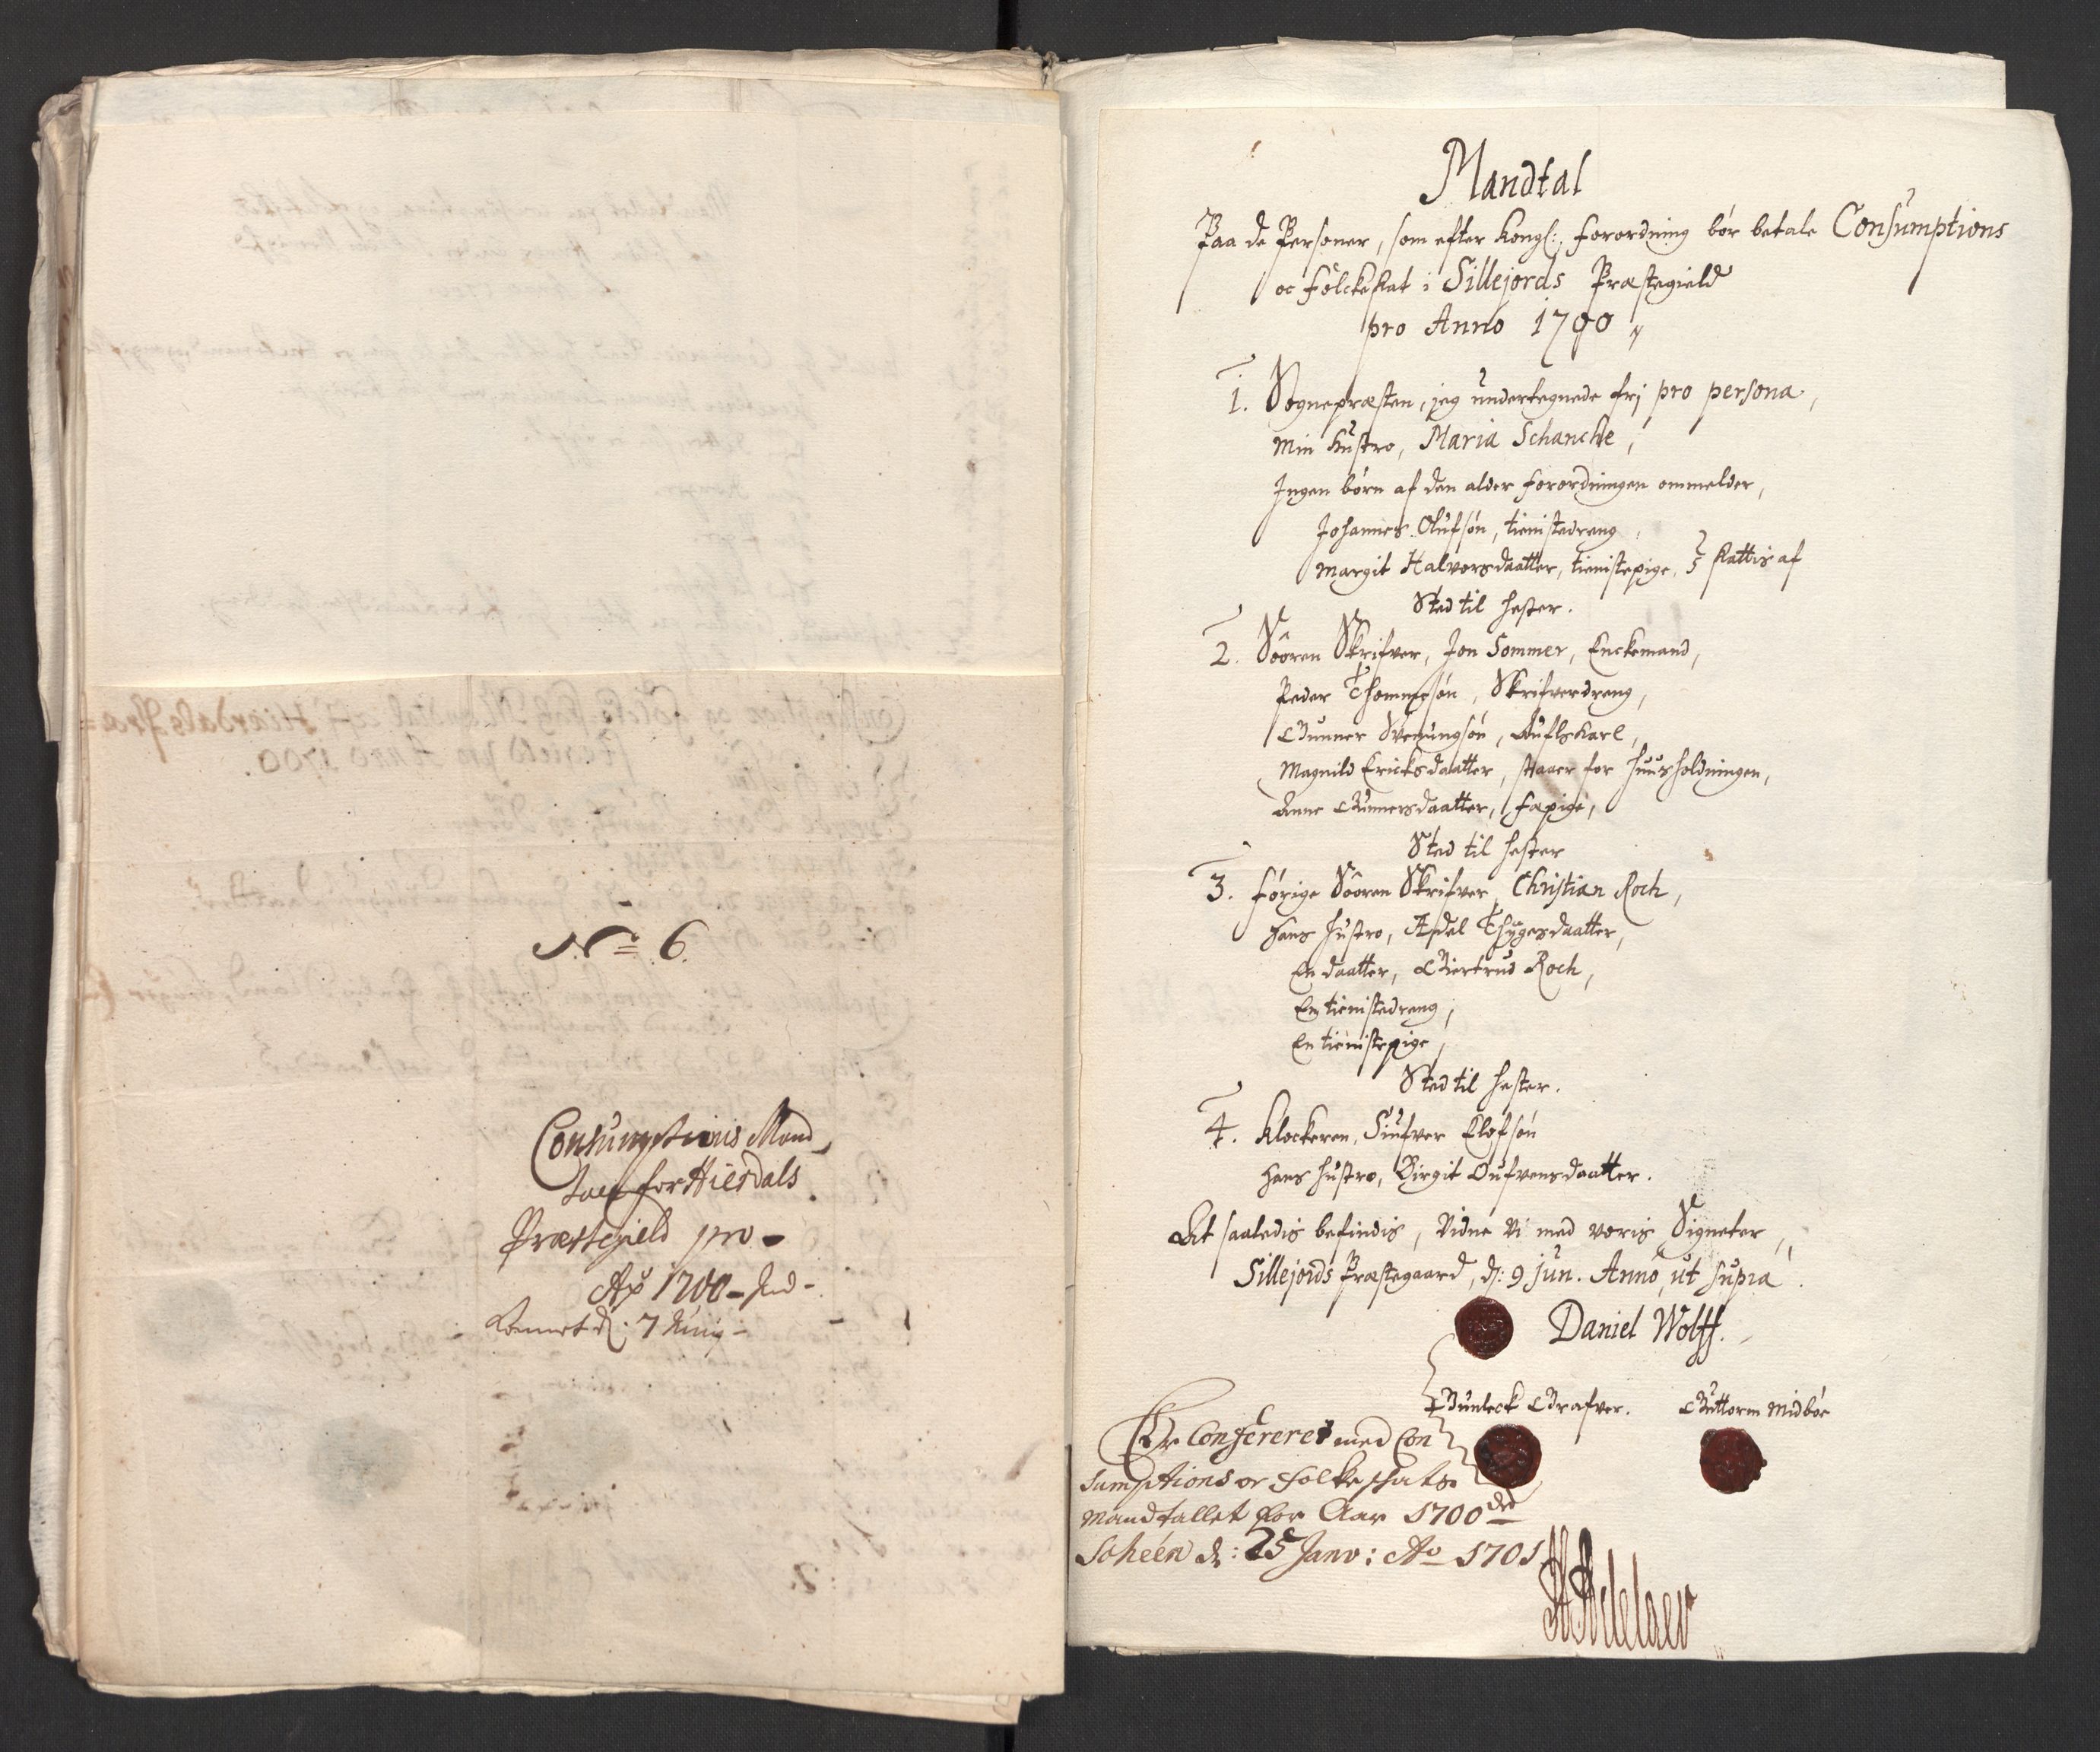 No 6.
Consumptions Mand
tall for Hierdals
Præstegield pro
Ao 1700 Ind-
kommet d: 7 Junij
Mandtal
Paa de Personer, som efter Kongl: Forordning bór betale Consumptions
oc Folckeskat i Sillejords Præstegield
pro Anno 1700
1. Sognepræsten, jeg undertegnede frj pro persona,
Min Hustro, Maria Schancke,
Ingen bórn af den alder forordningen ommelder,
Johannes Olufsón, tienistedreng
Margit Halvorsdaatter, tienistepige, skattis af
Sted til Hester.
2. Sóoren Skrifver, Jon Sommer, Enckemand,
Peder Thommesón, Skrifverdreng,
Gunner Svenungsón, Gufskarl,
Magnild Ericksdaatter, staaer for huusholdningen,
Anne Gunnersdaatter, fæpige,
Sted til Hester
3. forige Sóoren Skrifver, Christian Roch,
Hans Hustro, Adel Thygesdaatter,
En daatter, Giertrud Roch,
En tienistedreng,
En tienistepige,
Sted til Hester.
4. Klockeren, Siufver Elofsón
Hans Hustro, Birgit Oufvensdaatter.
At saaledis befindis, Vidne Vi med voris Signeter,
Sillejords Præstegaard, d: 9 Jun. Anno, ut supra.
Daniel Wolff.
Gunleck Grafver. Guttorm Midbóe
Er Confereret med Con
sumptions oc folkeschats
Mandtallet for Aar 1700de
Scheen d: 25 Janv: Ao 1701
H Adelaer